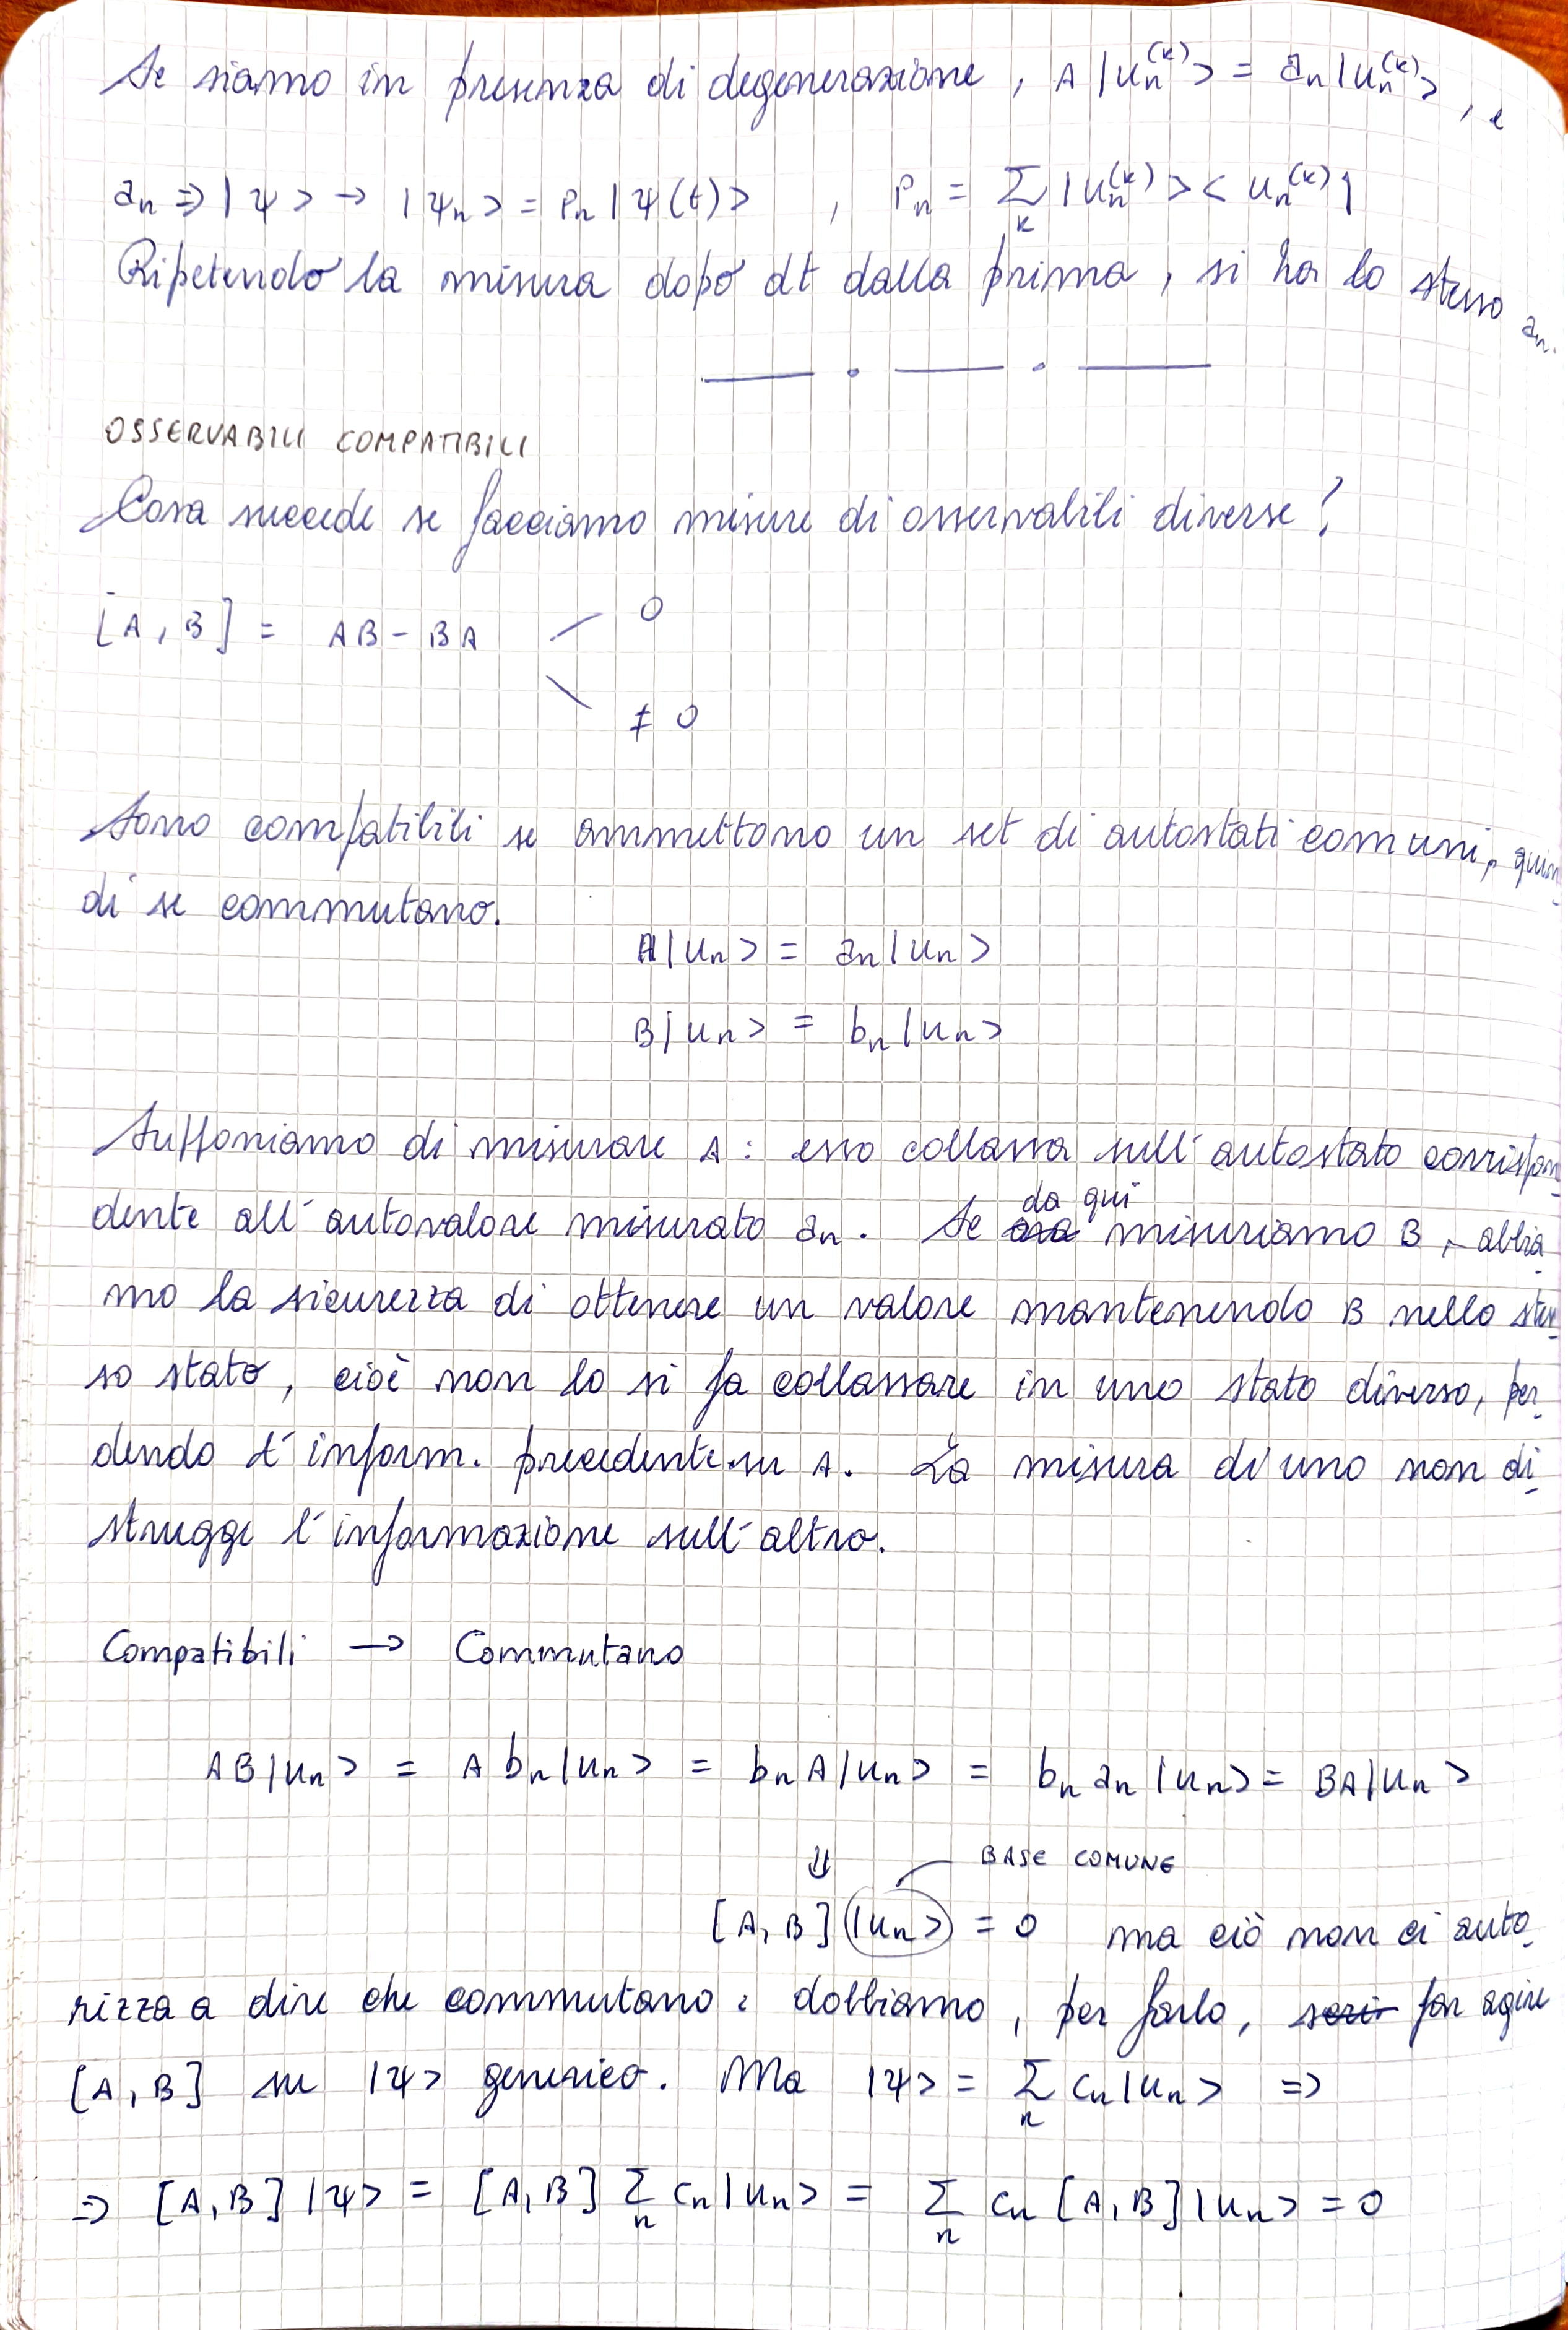 Se siamo in presenza di degenerazione, A|uₙ⁽ᵏ⁾> = aₙ|uₙ⁽ᵏ⁾>, e
aₙ ⇒ |ψ> → |ψₙ> = Pₙ|ψ(t)> , Pₙ = Σₖ |uₙ⁽ᵏ⁾><uₙ⁽ᵏ⁾|
Ripetendo la misura dopo dt dalla prima, si ha lo stesso aₙ.
OSSERVABILI COMPATIBILI
Cosa succede se facciamo misure di osservabili diverse?
[A,B] = AB - BA
0
≠ 0
Sono compatibili se ammettono un set di autostati comuni, quin-
di se commutano.
A|uₙ> = aₙ|uₙ>
B|uₙ> = bₙ|uₙ>
Supponiamo di misurare A: esso collassa sull'autostato corrispon
dente all'autovalore misurato aₙ. Se da qui misuriamo B, abbia-
mo la sicurezza di ottenere un valore mantenendo B nello stes-
so stato, cioè non lo si fa collassare in uno stato diverso, per-
dendo l'inform. precedente su A. La misura di uno non di-
strugge l'informazione sull'altro.
Compatibili → Commutano
AB|uₙ> = A bₙ|uₙ> = bₙ A|uₙ> = bₙ aₙ|uₙ> = BA|uₙ>
⇓ BASE COMUNE
[A,B]|uₙ> = 0 ma ciò non ci auto-
rizza a dire che commutano: dobbiamo, per farlo, far agire
[A,B] su |ψ> generico. Ma |ψ> = Σₙ cₙ|uₙ> ⇒
⇒ [A,B]|ψ> = [A,B] Σₙ cₙ|uₙ> = Σₙ cₙ [A,B]|uₙ> = 0